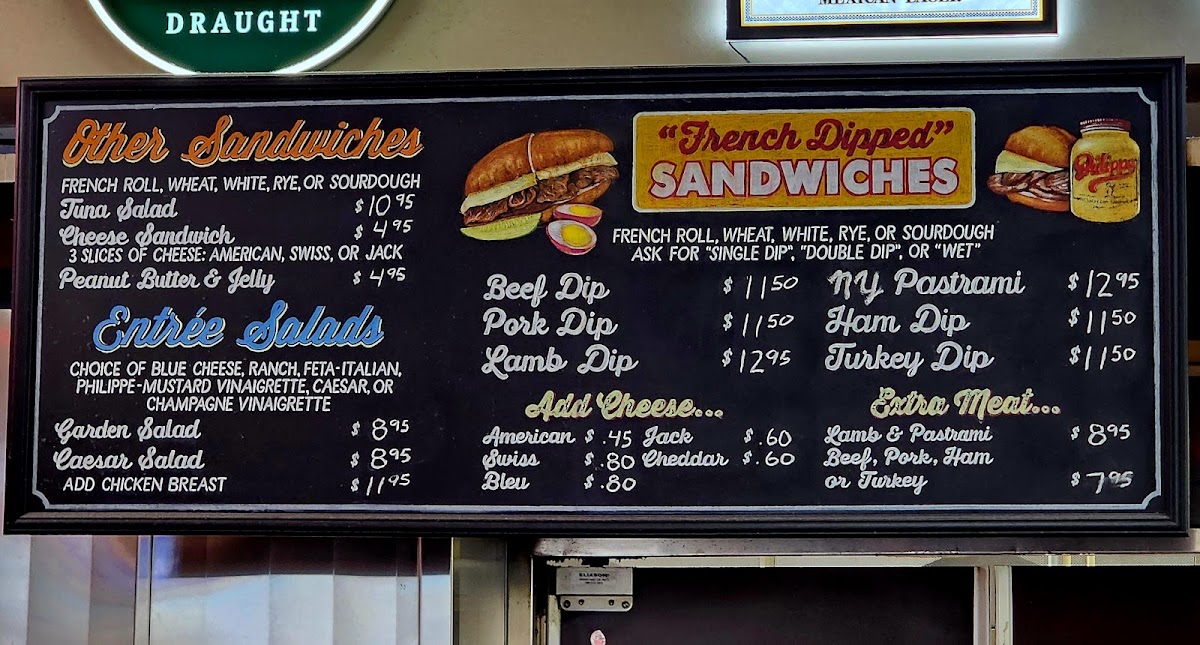 DRAUGHT
Other Sandwiches
FRENCH ROLL, WHEAT, WHITE, RYE, OR SOURDOUGH
Tuna Salad $10 95
Cheese Sandwich $4 95
3 SLICES OF CHEESE: AMERICAN, SWISS, OR JACK
Peanut Butter & Jelly $4 95
Entrée Salads
CHOICE OF BLUE CHEESE, RANCH, FETA-ITALIAN,
PHILIPPE-MUSTARD VINAIGRETTE, CAESAR, OR
CHAMPAGNE VINAIGRETTE
Garden Salad $8 95
Caesar Salad $8 95
ADD CHICKEN BREAST $11 95
"French Dipped"
SANDWICHES
Philippe
FRENCH ROLL, WHEAT, WHITE, RYE, OR SOURDOUGH
ASK FOR "SINGLE DIP", "DOUBLE DIP", OR "WET"
Beef Dip $11 50
Pork Dip $11 50
Lamb Dip $12 95
NY Pastrami $12 95
Ham Dip $11 50
Turkey Dip $11 50
Add Cheese...
American $.45 Jack $.60
Swiss $.80 Cheddar $.60
Bleu $.80
Extra Meat...
Lamb & Pastrami $8 95
Beef, Pork, Ham
or Turkey $7 95